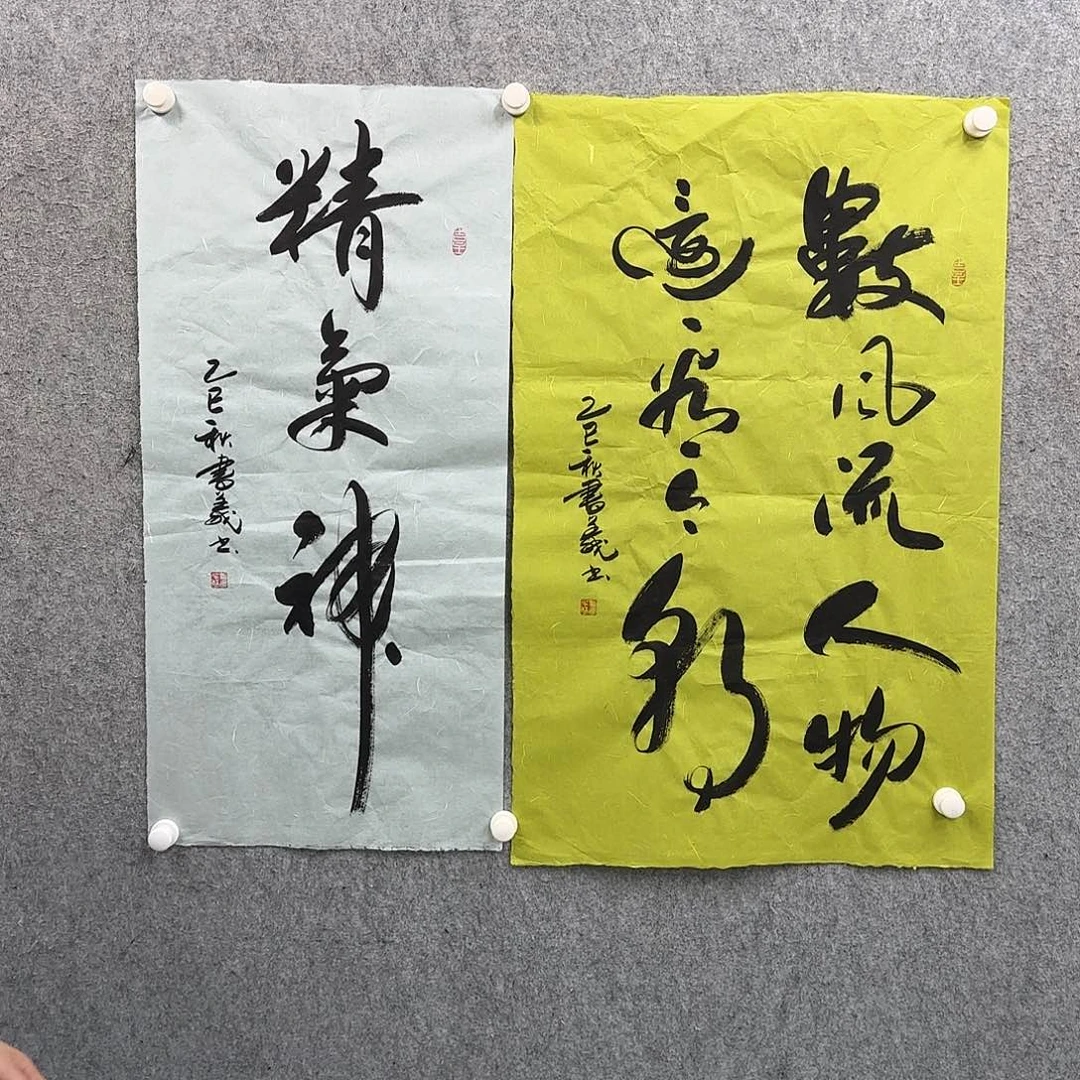 數風流人物
還看今朝
乙巳秋書義书
精氣神
乙巳秋書義书